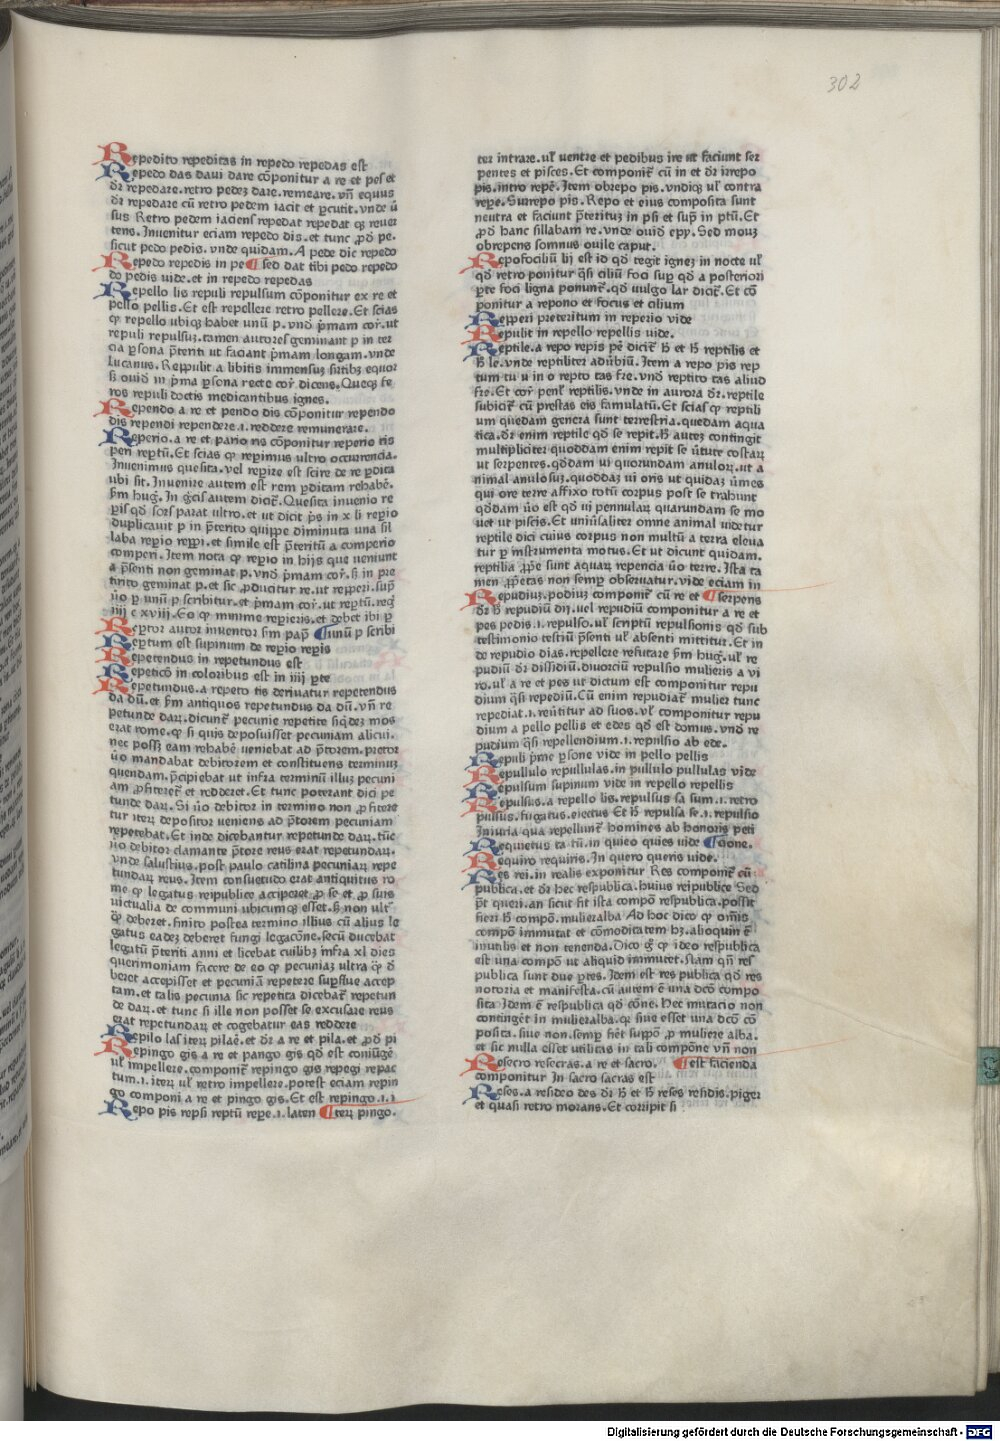 302
Repedito repeditas in repedo repedas est
Repedo das daui dare cōponitur a re et pes et
dr̄ repedare. retro pedez dare. remeare. vn̄ equus
dr̄ repedare cū retro pedem iacit et ꝑcutit. vnde ū
sus Retro pedem iaciens repedat repedat qꝫ reuer
tens. Inuenitur eciam repedo dis. et tunc ꝓd̄ pe.
sicut pedo pedis. vnde quidam. A pede dic repedo
Repedo repedis in pe ¶ sed dat tibi pedo repedo
do pedis uide. et in repedo repedas
Repello lis repuli repulsum cōponitur ex re et
pello pellis. Et est repellere retro pellere. Et scias
qꝙ repello ubiqꝫ habet unū p. vnd̄ p̄mam cor̄. ut
repuli repulsuꝫ. tamen autores geminant p in ter
cia ꝑsona p̄teriti ut faciant p̄mam longam. vnde
Lucanus. Reppulit a libitis immensuꝫ sirtibꝫ equor
s̄ ouid̄ in p̄ma ꝑsona recte cor̄ dicens. Quecqꝫ fe
ros repuli doctis medicantibus ignes.
Rependo a re et pendo dis cōponitur rependo
dis rependi rependere .i. reddere remunerare.
Reperio. a re et pario ris cōponitur reperio ris
peri reptū. Et scias qꝙ reꝑimus ultro occurrencia.
Inuenimus quesita. vel reꝑire est scire de re ꝑdita
ubi sit. Inuenire autem est rem ꝑditam rehabē.
s̄m huḡ. In gr̄cis autem dicit̄. Quesita inuenio re
ꝑis qd̄ sors parat ultro. et ut dicit p̄s in x li reꝑio
duplicauit p in p̄terito quippe diminuta una sil
laba reꝑio reppi. et simile est p̄teritū a comperio
comperi. Item nota qꝙ reꝑio in hijs que ueniunt
a p̄senti non geminat p. vnd̄ p̄mam cor̄. s̄ in pre
terito geminat p. et sic ꝓducitur re. ut repperi. suꝑ
ūo ꝑ unū p scribitur. et p̄mam cor̄. ut reptū. req̄
iiij e xviij. Eo qꝙ minime reꝑieris. et debet ibi ꝑ
Reptor autor inuentor s̄m pap̄ ¶ unū p scribi
Reptum est supinum de reꝑio reꝑis
Repetendus in repetundus est
Repeticō in coloribus est in iiij ꝑte
Repetundus. a repeto tis deriuatur repetendus
da dū. et s̄m antiquos repetundus da dū. vn̄ re
petunde daꝝ. dicunt̄ pecunie repetite siq̄dez mos
erat rome. qꝙ si quis deposuisset pecuniam alicui.
nec possꝫ eam rehabē ueniebat ad p̄torem. pretor
ūo mandabat debitorem et constituens terminuꝫ
quendam. p̄cipiebat ut infra terminū illuꝫ pecuni
am ꝓfiteret̄ et redderet. Et tunc poterant dici pe
tunde daꝝ. Si ūo debitor in termino non ꝓfitere
tur iterꝫ depositor ueniens ad p̄torem pecuniam
repetebat. Et inde dicebantur repetunde daꝝ. tūc
ūo debitor clamante p̄tore reus erat repetundaꝝ.
vnde salustius. post paulo catilina pecuniaꝝ repe
tundaꝝ reus. Item consuetudo erat antiquitus ro
me qꝙ legatus reipublice acciperet ꝓ se et ꝓ suis
uictualia de communi ubicumqꝫ esset. s̄ non ult̄
qꝙ deberet. finito postea termino illius cū alius le
gatus eadeꝫ deberet fungi legacōne. secū ducebat
legatū p̄teriti anni et licebat cuilibꝫ infra xl dies
querimoniam facere de eo qꝙ pecuniaꝫ ultra qꝙ d̄
beret accepisset et pecuniā repetere suꝑflue accep
tam. et talis pecunia sic repetita dicebat̄ repetun
de daꝝ. et tunc si ille non posset se excusare reus
erat repetundaꝝ et cogebatur eas reddere
Repilo las iterꝫ pilare. et dr̄ a re et pila. et ꝓd̄ pi
Repingo gis a re et pango gis qd̄ est coniūgē
ul̄ impellere. componit̄ repingo gis repegi repac
tum .i. iterꝫ ul̄ retro impellere. potest eciam repin
go componi a re et pingo gis. Et est repingo .i. i
Repo pis repsi reptū reꝑe .i. laten ¶ teꝝ pingo.
ter intrare. ul̄ uentre et pedibus ire ut faciunt ser
pentes et pisces. Et componit̄ cū in et dr̄ irrepo
pis. intro repē. Item obrepo pis. vndiqꝫ ul̄ contra
reꝑe. Surrepo pis. Repo et eius composita sunt
neutra et faciunt p̄teritum in psi et sup̄ in ptū. Et
ꝓd̄ hanc sillabam re. vnde ouid̄ epy. Sed mouꝫ
obrepens somnus ouile caput.
Repofociliū lij est id qd̄ tegit ignez in nocte ul̄
qd̄ retro ponitur q̄si ciliū foci sup̄ qd̄ a posteriori
ꝑte foci ligna ponunt̄. qd̄ uulgo lar dicit̄. Et cō
ponitur a repono et focus et cilium
Repperi preteritum in reperio vide
Repulit in repello repellis uide.
Reptile. a repo repis pē dicit̄ h̄ et h̄ reptilis et
h̄ le. vnde reptiliter aduerbiū. Item a repo pis rep
tum tu u in o repto tas fre. vnd̄ reptito tas aliud
fre. Et cor̄ penl̄ reptilis. vnde in aurora dr̄. reptile
subicit̄ cū prestas eis famulatū. Et scias qꝙ reptili
um quedam genera sunt terrestria. quedam aqua
tica. dr̄ enim reptile qd̄ se repit. h̄ autez contingit
multipliciter quoddam enim repit se ūtute costaꝝ
ut serpentes. qd̄dam ui quorundam anuloꝝ. ut a
nimal anulosuꝫ. quoddaꝫ ui oris ut quidaꝫ ūmes
qui ore terre affixo totū corpus post se trahunt
qd̄dam ūo est qd̄ ui pennulaꝝ quarundam se mo
uet ut piscis. Et uniūsaliter omne animal uidetur
reptile dici cuius corpus non multū a terra eleua
tur ꝑ instrumenta motus. Et ut dicunt quidam.
reptilia ꝓpe sunt aquaꝝ repencia ūo terre. Ista ta
men ꝓpetas non semp̄ obseruatur. vide eciam in
Repudiuꝫ. podiuꝫ componit̄ cū re et ¶ serpens
dr̄ h̄ repudiū dij. uel repudiū componitur a re et
pes pedis .i. repulso. ul̄ scriptū repulsionis qd̄ sub
testimonio testiū p̄senti ul̄ absenti mittitur. Et in
de repudio dias. repellere refutare s̄m huḡ. ul̄ re
pudiū dr̄ dissidiū. diuorciū repulsio mulieris a vi
ro. ul̄ a re et pes ut dictum est componitur repu
dium q̄si repediū. Cū enim repudiat̄ mulier tunc
repediat .i. reūtitur ad suos. ul̄ componitur repu
dium a pello pellis et edes qd̄ est domus. vnd̄ re
pudium q̄si repellendium .i. repulsio ab ede.
Repuli p̄me ꝑsone vide in pello pellis
Repullulo repullulas. in pullulo pullulas vide
Repulsum supinum vide in repello repellis
Repulsus. a repello lis. repulsus sa sum .i. retro
pulsus. fugatus. eiectus Et h̄ repulsa se .i. repulsio
Iniuria qua repellunt̄ homines ab honoris peti
Requietus ta tū. in quieo quies uide ¶ cione.
Requiro requiris. In quero queris vide.
Res rei. in realis exponitur Res componit̄ cū
publica. et dr̄ hec respublica. huius reipublice Sed
p̄t queri. an sicut fit ista compō respublica. possit
fieri h̄ compō. mulieralba Ad hoc dico qꝙ om̄is
compō immutat et cōmoditatem hꝫ. alioquin ē
inutilis et non tenenda. Dico gͦ qꝙ ideo respublica
est una compō ut aliquid immutet. Nam qn̄ res
publica sunt due ꝑtes. Idem est res publica qd̄ res
notoria et manifesta. cū autem ē una dcō compo
sita Idem ē respublica qd̄ cōne. Hec mutacio non
contingēt in mulieralba. qꝫ siue esset una dcō cō
posita. siue non. semp̄ fiēt suppō ꝓ muliere alba.
et sic nulla esset utilitas in tali compōne vn̄ non
Resecro resecras. a re et sacro. ¶ est facienda
componitur In sacro sacras est
Reses. a resideo des dr̄ h̄ et h̄ reses residis. piger
et quasi retro morans. Et corripit si
Digitalisierung gefördert durch die Deutsche Forschungsgemeinschaft - DFG